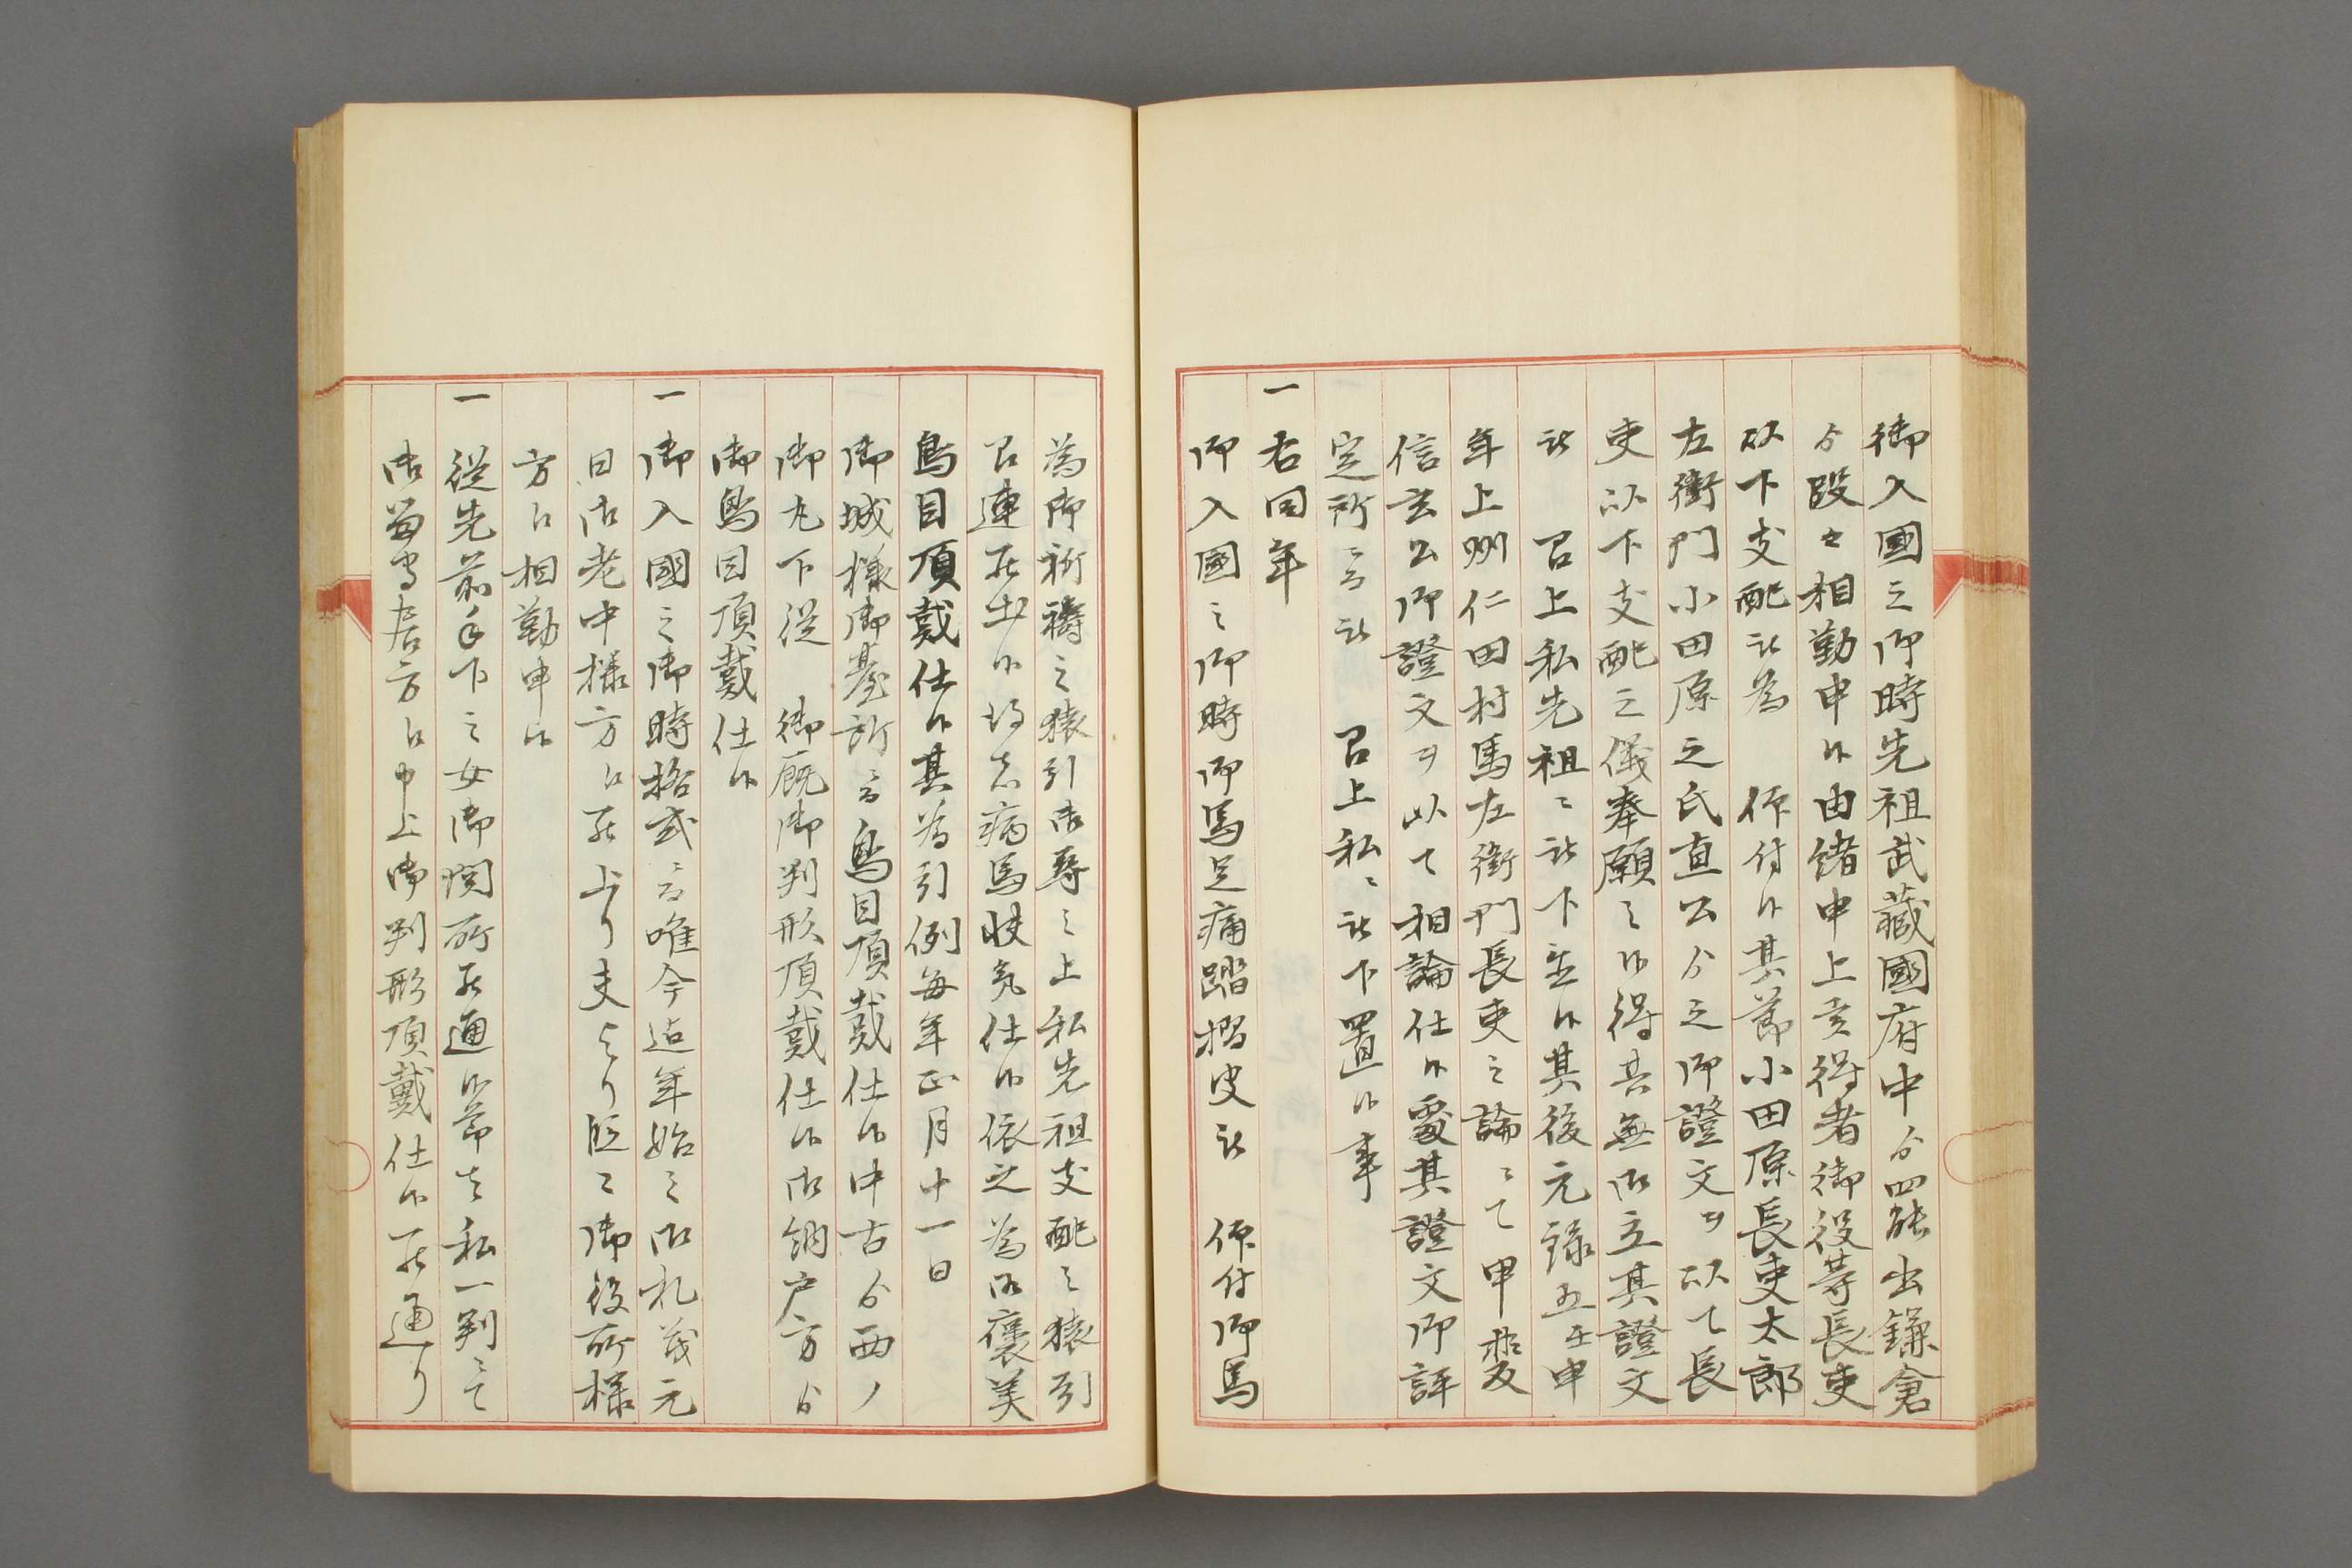 御入國之御時先祖武藏國府中ゟ罷出鎌倉
ゟ段々相勤申候由緒申上奉得者御役等長吏
以下支配被為　仰付候其節小田原長吏太郎
左衛門小田原之氏直公ゟ之御證文ヲ以て長
吏以下支配之儀奉願之候得共無御立其證文
被　召上私先祖ニ被下置候其後元錄五壬申
年上州仁田村馬左衛門長吏之論ニて甲斐
信玄公御證文ヲ以て相論仕候處其證文御評
定所ニ而被　召上私ニ被下置候事
一　右同年
御入國之御時御馬足痛踏摺皮被　仰付御馬
為御祈禱之猿引御尋之上私先祖支配之猿引
召連罷出候得者病馬快気仕候依之為御褒美
鳥目頂戴仕候其為引例每年正月十一日
御城様御臺所ニ而鳥目頂戴仕候中古ゟ西ノ
御丸下従　御厩御判形頂戴仕候御納户方ゟ
御鳥目頂戴仕候
一　御入國之御時格式ニ而唯今迄年始之御礼歲元
日御老中様方江罷上り夫より段ニ御役所様
方江相勤申候
一　從先前手下之女御関所罷通候節者私一判ニて
御留守居方江申上御判形頂戴仕候罷通り